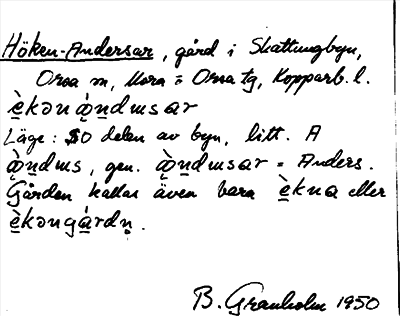 Höken-Andersar, gård i Skattungbyn,
Orsa sn, Mora o Orsa tg, Kopparb. l.
è̱kənà̱̣ndɯsar
Läge: SO delen av byn, litt. A
à̱̣ndɯs, gen. à̱̣ndɯsar = Anders.
Gården kallas även bara è̱kna eller
è̱kəngá̱rdṇ.
B. Granholm 1950